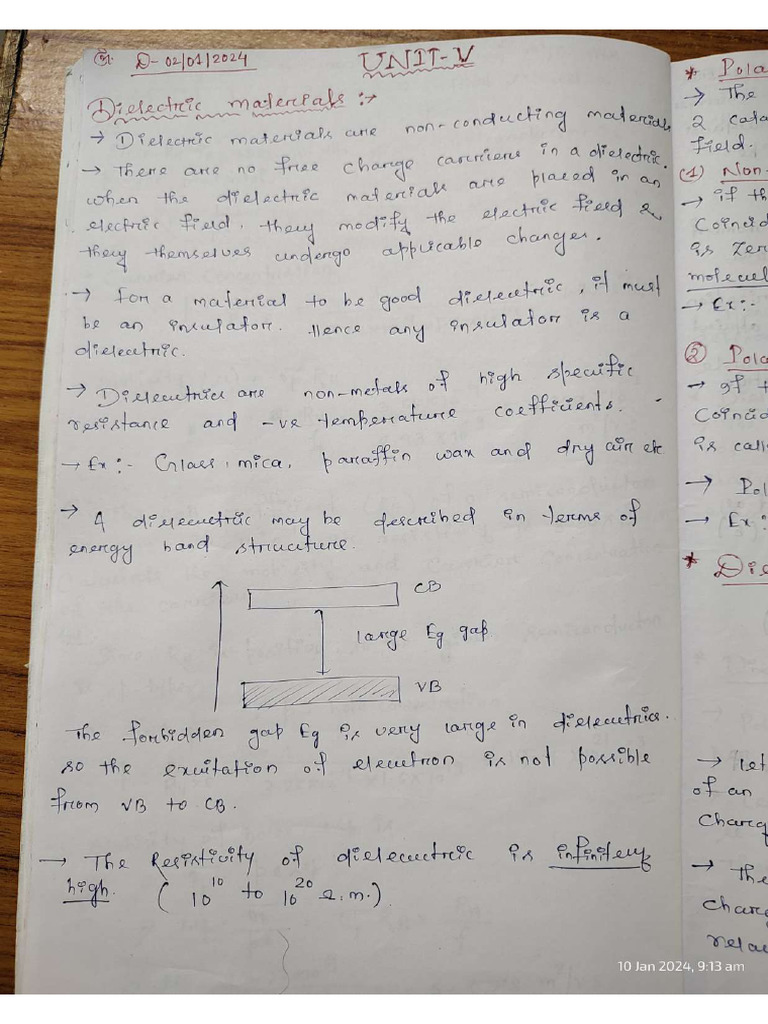 D- 02/01/2024
UNIT-V
Dielectric materials :→
→ Dielectric materials are non-conducting materials
→ There are no free change carriers in a dielectric.
when the dielectric materials are placed in an
electric field, they modify the electric field &
they themselves undergo applicable changes.
→ For a material to be good dielectric, it must
be an insulator. Hence any insulator is a
dielectric.
→ Dielectrics are non-metals of high specific
resistance and -ve temperature coefficients.
→ Ex :- Glass, mica, paraffin wax and dry air etc
→ A dielectric may be described in terms of
energy band structure.
CB
large Eg gap
VB
The forbidden gap Eg is very large in dielectrics.
so the excitation of electron is not possible
from VB to CB.
→ The Resistivity of dielectric is infinitely
high. ( 10¹⁰ to 10²⁰ Ω.m.)
* Pola
→ The
2 cata
field.
(1) Non-
→ if th
Coincid
is zer
molecul
→ Ex:-
② Pola
→ If t
Coincid
is call
→ Pol
→ Ex :
* Die
→ Let
of an
Charg
→ The
Charg
rela
10 Jan 2024, 9:13 am